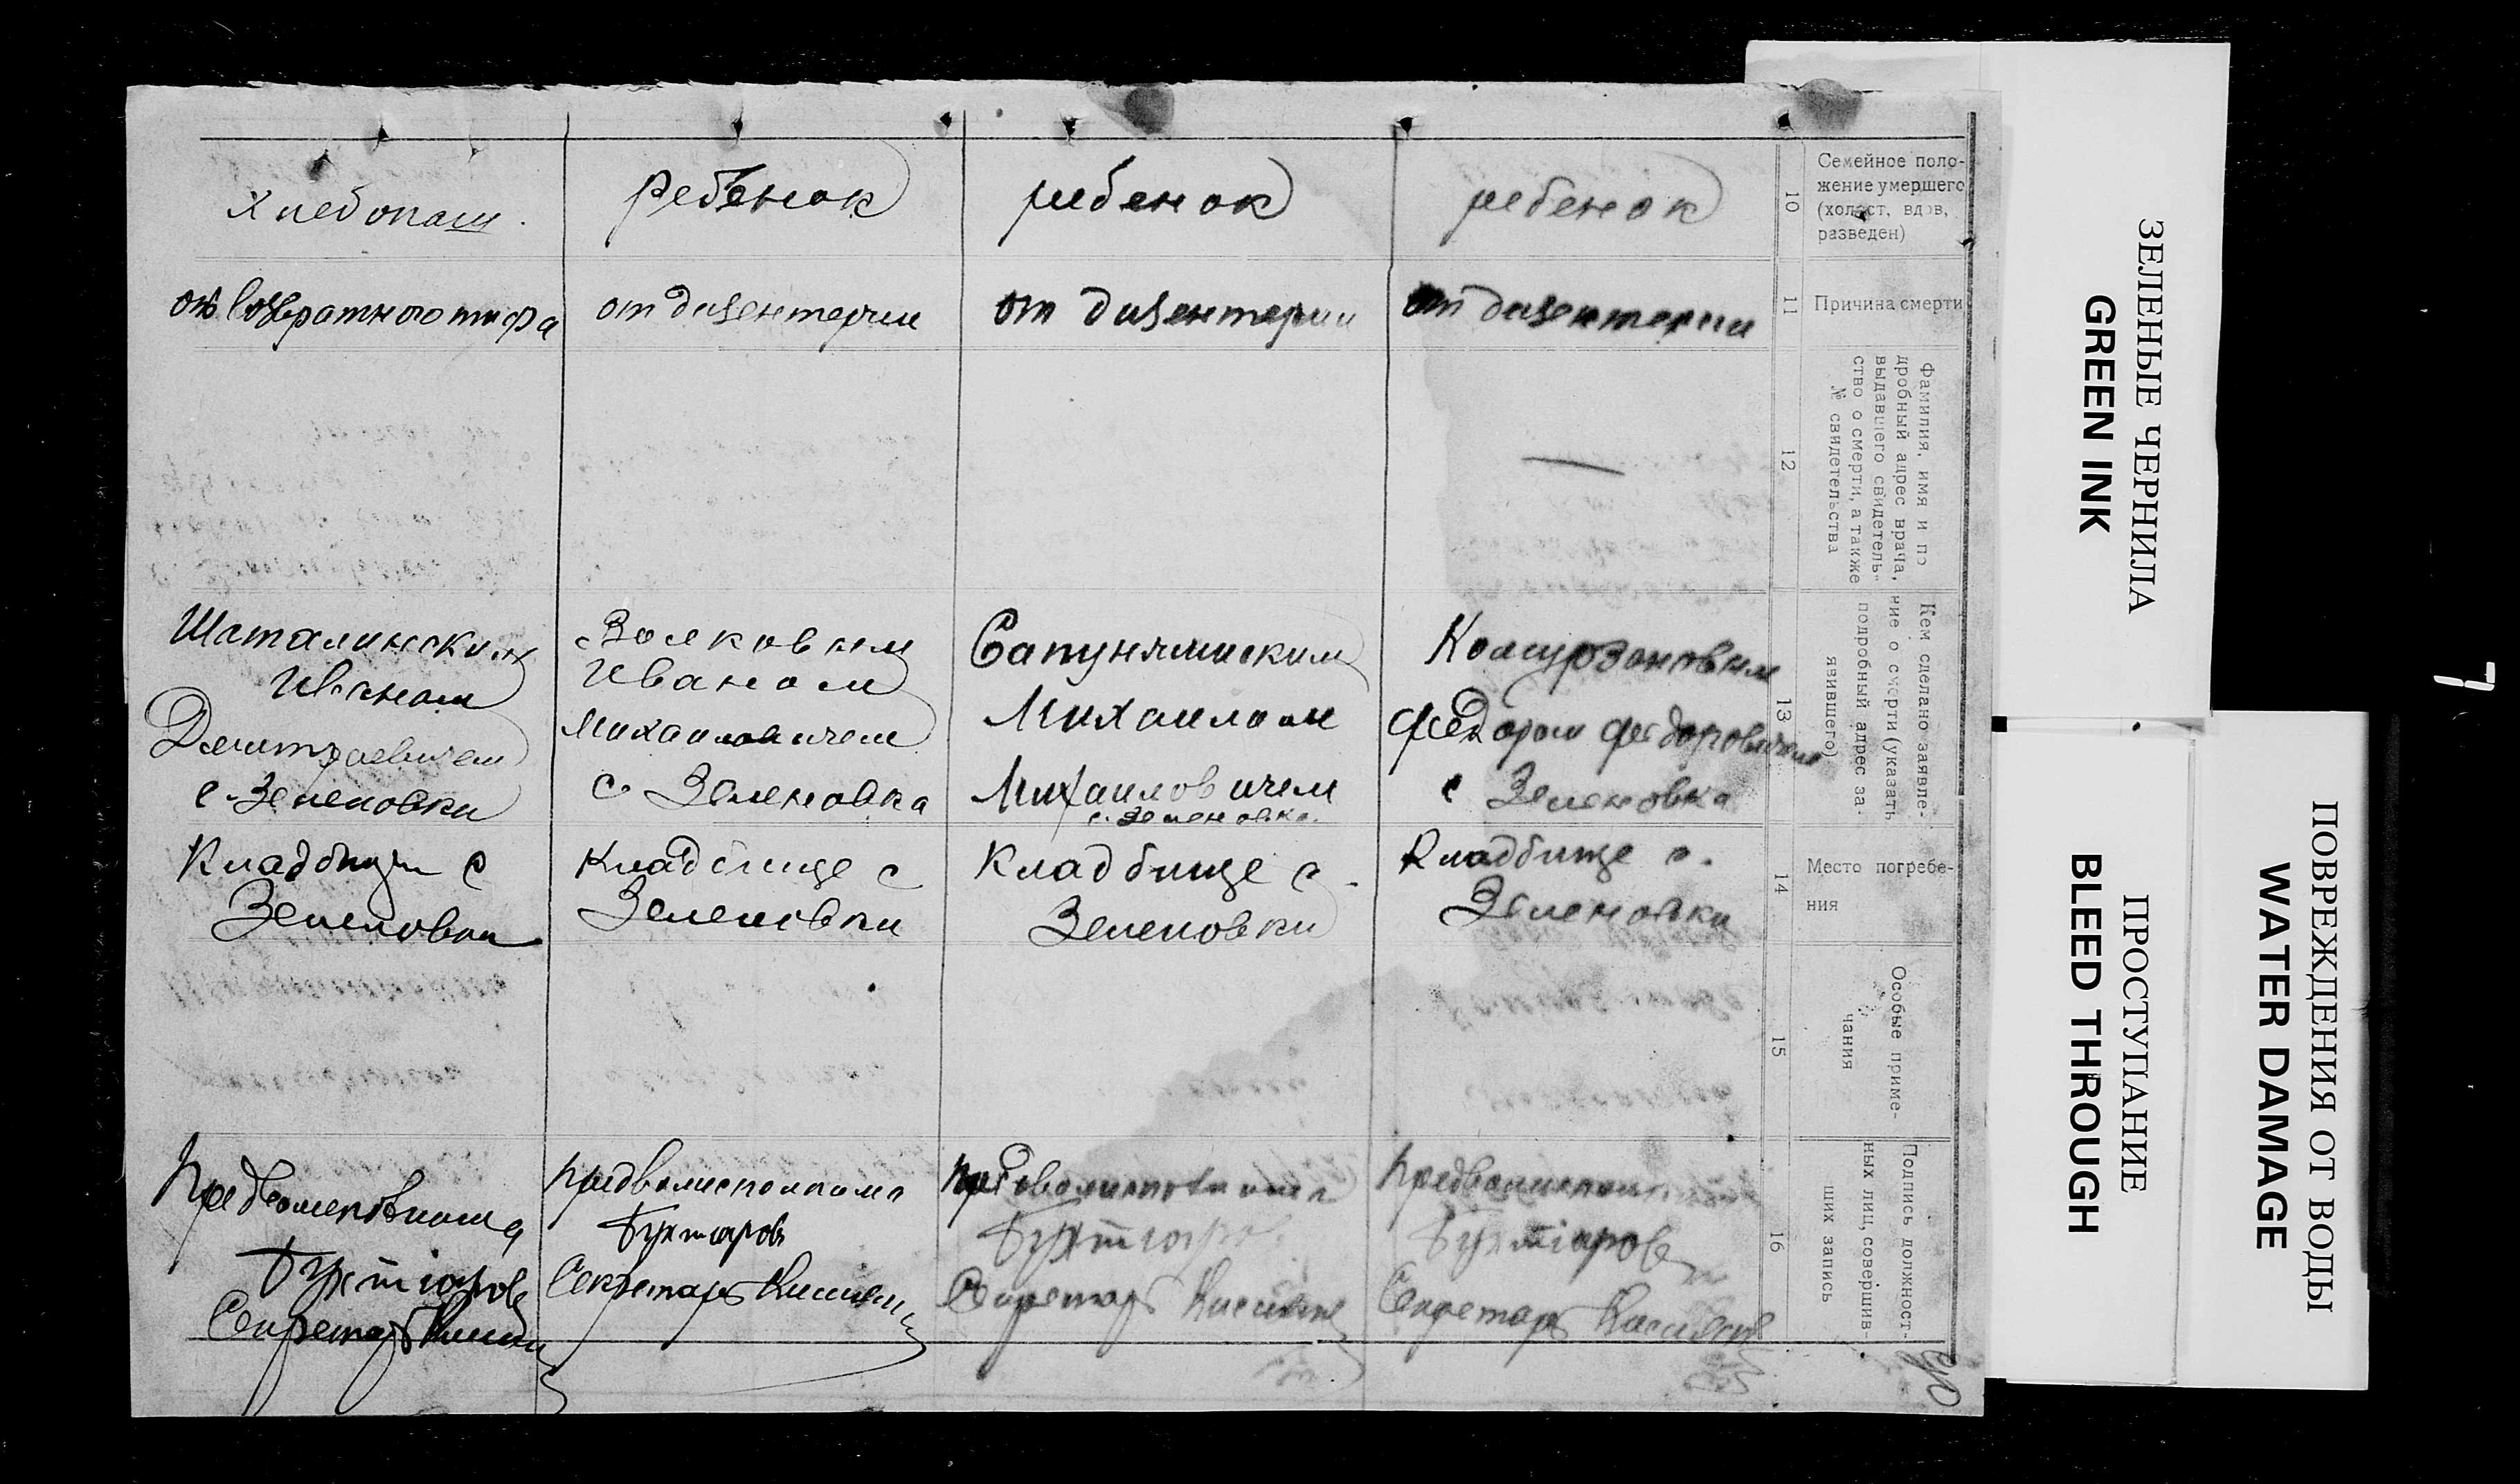 хлебопаш.
ребенок
ребенок
ребенок
10
Семейное поло-
жение умершего
(холост, вдов,
разведен)
от возвратного тифа
от дизентерии
от дизентерии
от дизентерии
11
Причина смерти
12
Фамилия, имя и по
дробный адрес врача,
выдавшего свидетель-
ство о смерти, а также
№ свидетельства
Шаталинским
Иваном
Дмитриевичем
с. Зеленовки
Волковым
Иваном
Михаиловичем
с. Зеленовка
Михаилом
Михаиловичем
с. Зеленовка
Федором Федоровичем
с Зеленовка
13
Кем сделано заявле-
ние о смерти (указать
подробный адрес за-
явившего)
Кладбище с
Зеленовки
Кладбище с
Зеленовки
Кладбище с.
Зеленовки
Кладбище с.
Зеленовки
14
Место погребе-
ния
15
Особые приме-
чания
Предволисполкома
Бухтияров
Секретарь
Предволисполкома
Бухтияров
Секретарь
Предволисполкома
Бухтияров
Секретарь
Предволисполкома
Бухтияров
Секретарь
16
Подпись должност-
ных лиц, совершив-
ших запись
ЗЕЛЕНЫЕ ЧЕРНИЛА
GREEN INK
ПРОСТУПАНИЕ
BLEED THROUGH
ПОВРЕЖДЕНИЯ ОТ ВОДЫ
WATER DAMAGE